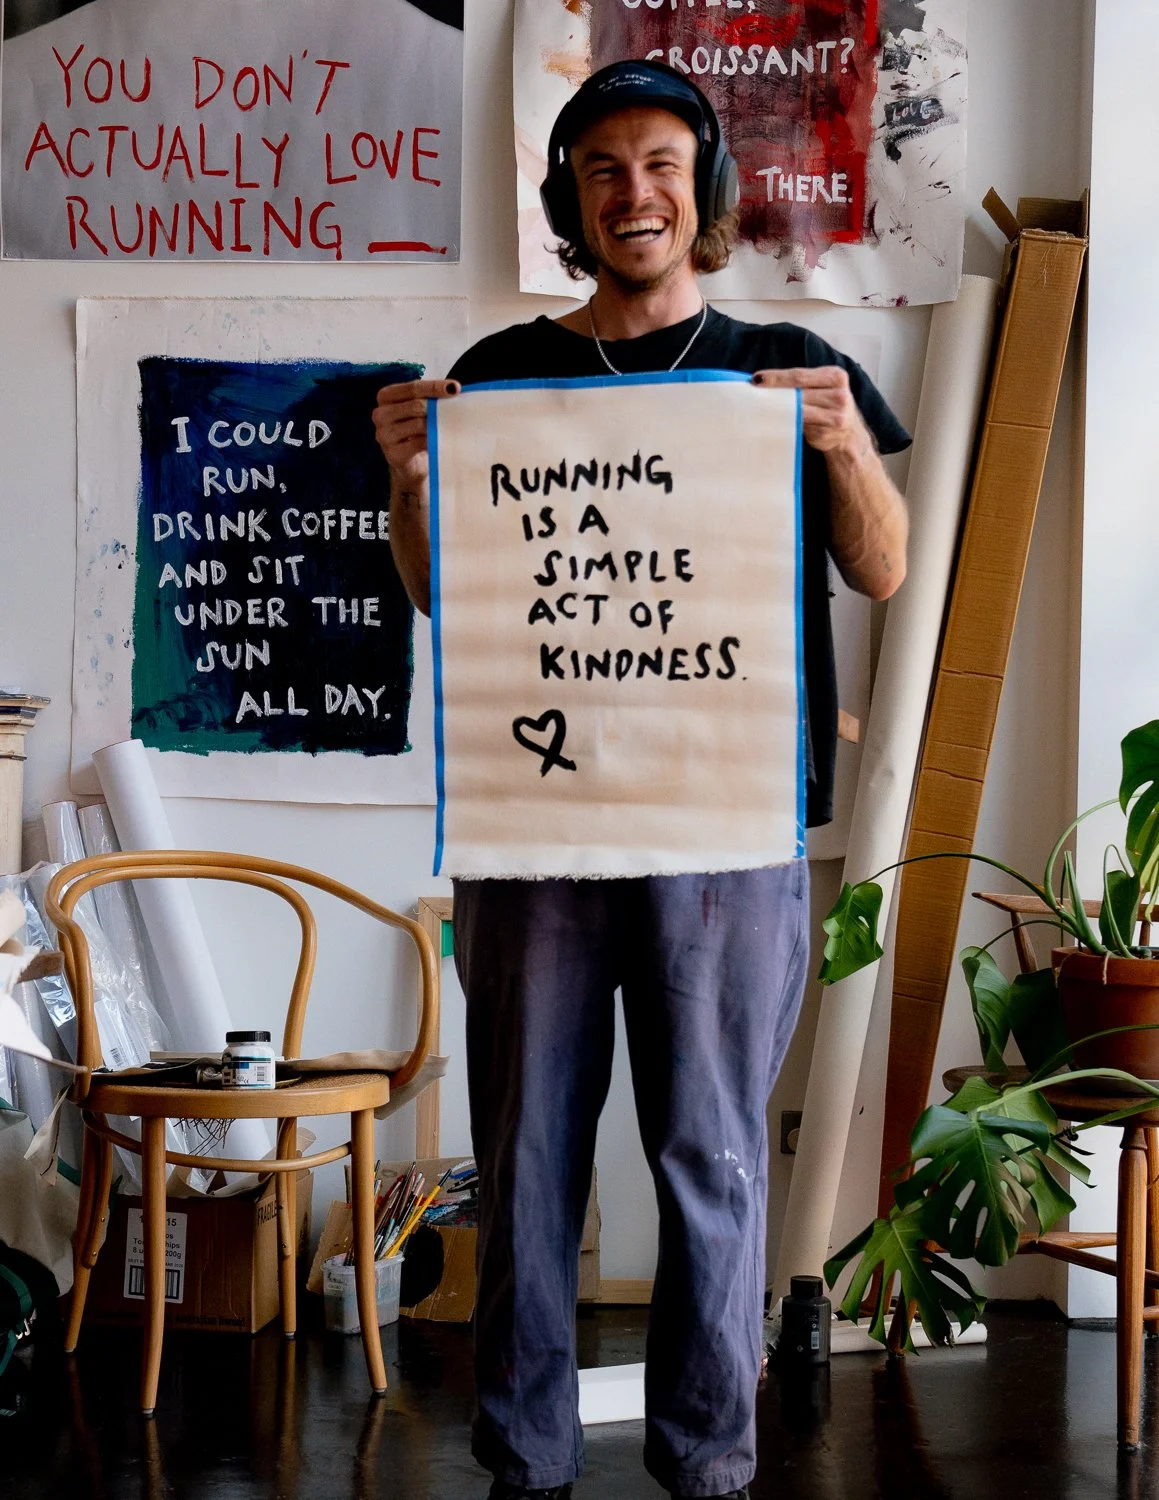 YOU DON'T
ACTUALLY LOVE
RUNNING
COFFEE,
CROISSANT?
THERE.
LOVE
I COULD
RUN,
DRINK COFFEE
AND SIT
UNDER THE
SUN
ALL DAY.
RUNNING
IS A
SIMPLE
ACT OF
KINDNESS.
FRAGILE
15
200g